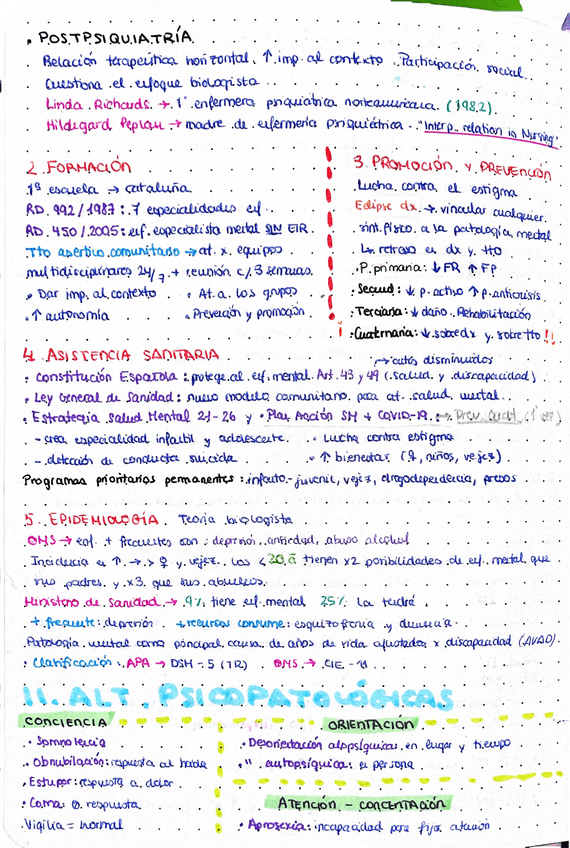 . POSTPSIQUIATRÍA
Relación terapéutica horizontal, ↑ imp. al contexto. Participación social
Cuestiona el enfoque biologista
Linda Richards → 1ª enfermera psiquiátrica norteamericana (1982)
Hildegard Peplau → madre de enfermería psiquiátrica - "Interp. relation in Nursing"
2. FORMACIÓN
1ª escuela → Cataluña
RD. 992/1987: 7 especialidades enf.
RD. 450/2005: enf. especialista mental SIN EIR.
Tto asertivo comunitario → at. x equipos
multidisciplinares 24/7 + reunión c/3 semanas.
• Dar imp. al contexto • At. a los grupos
• ↑ autonomía • Prevención y promoción
3. PROMOCIÓN Y PREVENCIÓN
Lucha contra el estigma
Eclipse dx → vincular cualquier
sint. físico a la patología mental
↳ retraso en dx y tto
• P. primaria: ↓ FR ↑ FP
• Secund: ↓ p. activo ↑ p. anticrisis
• Terciaria: ↓ daño. Rehabilitación
• Cuaternaria: ↓ sobredx y sobretto !!
4. ASISTENCIA SANITARIA
→ cuotas disminuidos
• Constitución Española: protege al enf. mental. Art. 43 y 49 (salud y discapacidad)
• Ley General de Sanidad: nuevo modelo comunitario para at. salud mental
• Estrategia Salud Mental 21-26 y • Plan Acción SM + COVID-19 →
- crea especialidad infantil y adolescente • Lucha contra estigma
- detección de conducta suicida • ↑ bienestar (♀, niños, vejez)
Programas prioritarios permanentes: infanto-juvenil, vejez, drogodependencia, presos
5. EPIDEMIOLOGÍA. Teoría biologista
OMS → enf. + frecuentes son: depresión, ansiedad, abuso alcohol
Incidencia en ↑ → > ♀ y vejez. Los < 20 a tienen x2 posibilidades de enf. mental que
sus padres y x3 que sus abuelos.
Ministerio de Sanidad → 9% tiene enf. mental 25% la tendrá
+ frecuente: depresión + recursos consume: esquizofrenia y demencia
Patología mental como principal causa de años de vida ajustados x discapacidad (AVAD)
• Clasificación: APA → DSM-5 (TR) OMS → CIE-11
11. ALT. PSICOPATOLÓGICAS
CONCIENCIA
• Somnolencia
• Obnubilación: respuesta al habla
• Estupor: respuesta a dolor
• Coma: Ø respuesta
Vigilia = normal
ORIENTACIÓN
• Desorientación alopsíquica: en lugar y tiempo
• " autopsíquica: en persona
ATENCIÓN - CONCENTRACIÓN
• Aprosexia: incapacidad para fijar atención